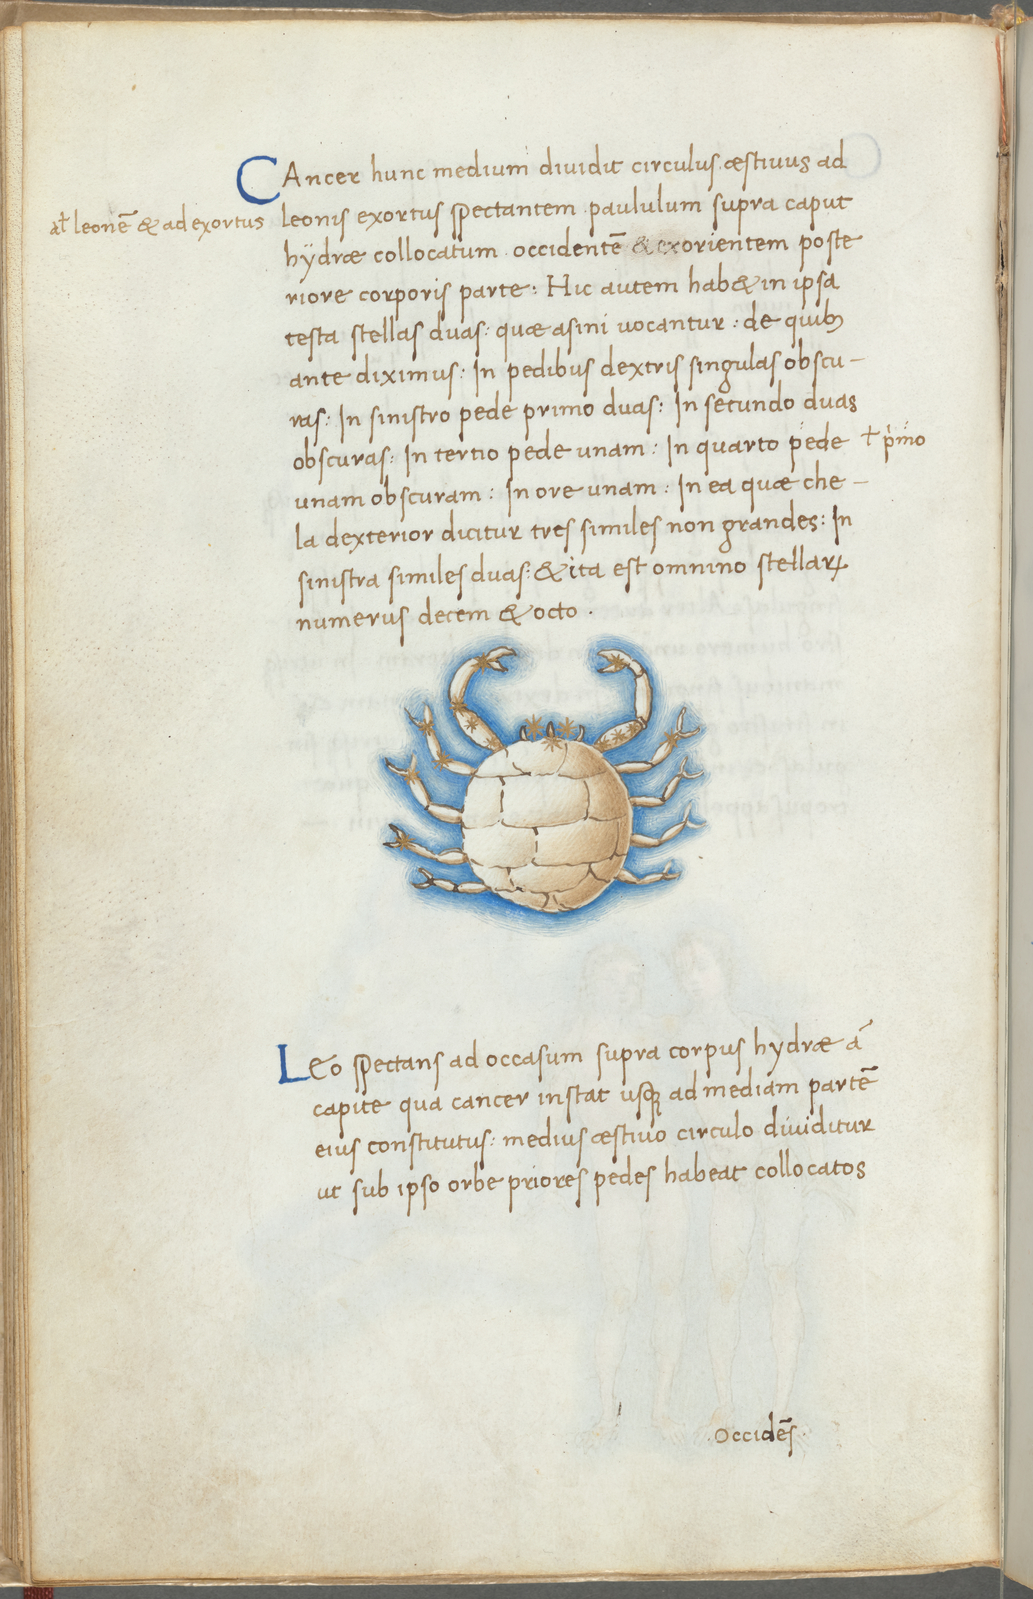 CAncer hunc medium diuidit circulus æstiuus ad
al̃ leonē & ad exortus
leonis exortus spectantem paululum supra caput
hydræ collocatum occidentē & exorientem poste
riore corporis parte: Hic autem hab& in ipsa
testa stellas duas: quæ asini uocantur: de quibꝫ
ante diximus: In pedibus dextris singulas obscu-
ras: In sinistro pede primo duas: In secundo duas
obscuras: In tertio pede unam: In quarto pede
unam obscuram: In ore unam: In ea quæ che-
la dexterior dicitur tres similes non grandes: In
sinistra similes duas: & ita est omnino stellaꝝ
numerus decem & octo.
LEo spectans ad occasum supra corpus hydræ a
capite qua cancer instat usqꝫ ad mediam partē
eius constitutus: medius æstiuo circulo diuiditur
ut sub ipso orbe priores pedes habeat collocatos
occidēs